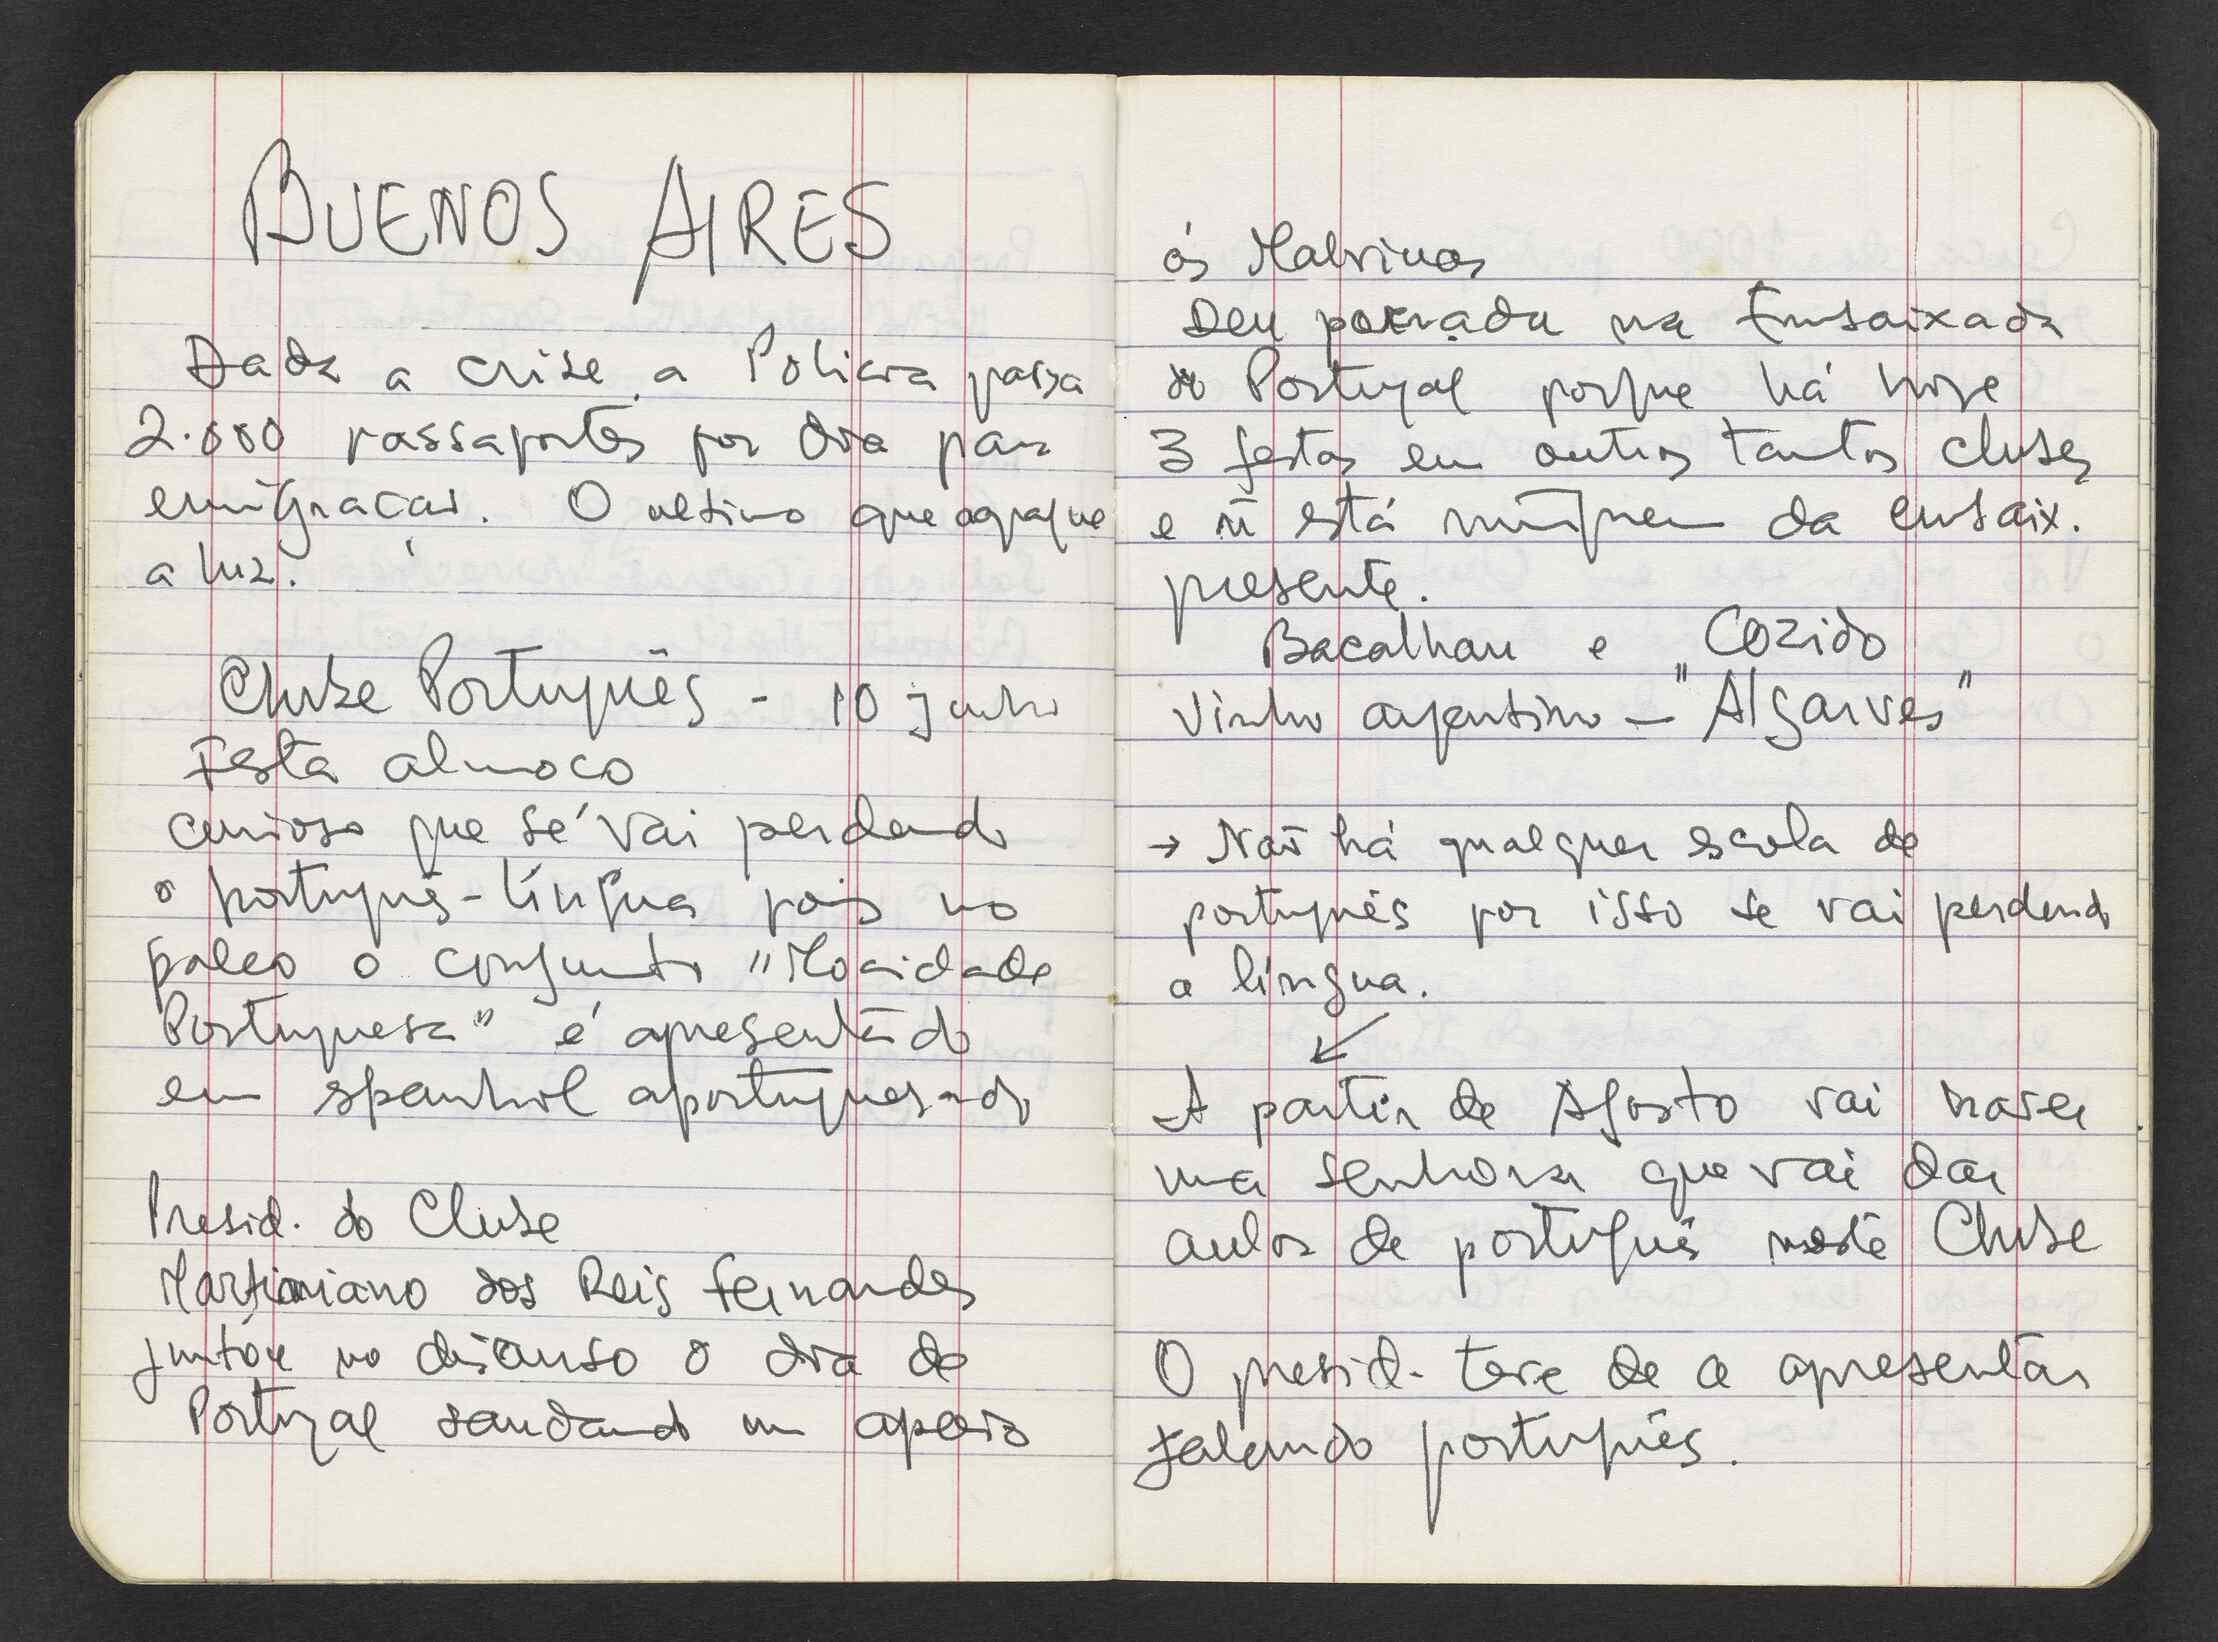 BUENOS AIRES
Dada a crise a Policia passa
2.000 passaportes por dia para
emigração. O ultimo que apague
a luz.
Clube Português - 10 junho
Festa almoço
curioso que se vai perdendo
o português-língua pois no
palco o conjunto "Mocidade
Portuguesa" é apresentado
em espanhol aportuguesado
Presid. do Clube
Martiniano dos Reis Fernandes
juntou no discurso o dia de
Portugal saudando um apoio
ás Malvinas
Deu porrada na Embaixada
de Portugal porque há hoje
3 festas em outros tantos clubes
e ñ está ninguem da embaix.
presente.
Bacalhau e Cozido
Vinho argentino - "Algarves"
→ Não há qualquer escola de
português por isso se vai perdendo
a língua.
↙
A partir de Agosto vai haver
uma senhora que vai dar
aulas de português neste Clube
O presid. teve de a apresentar
falando português.